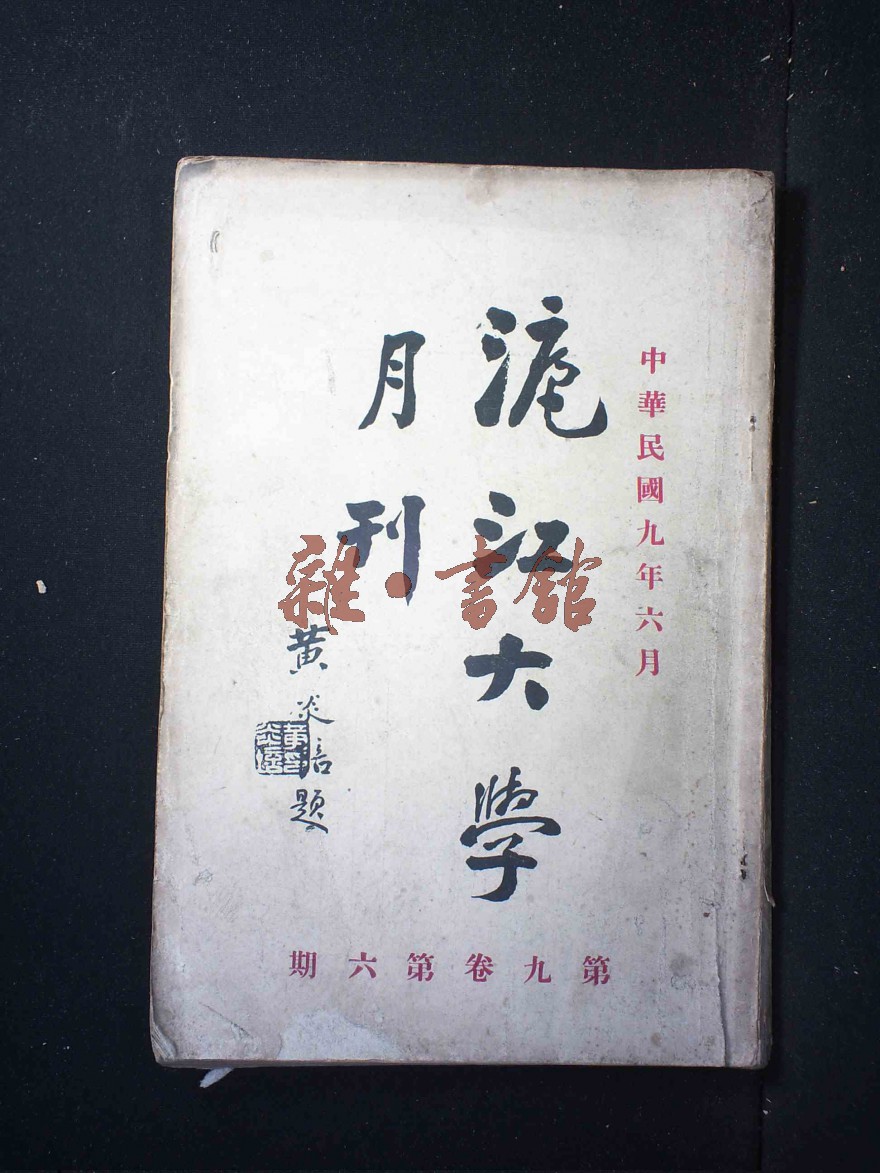 中華民國九年六月
滬江大學
月刊
黄炎培題
第九卷第六期
雜·書館